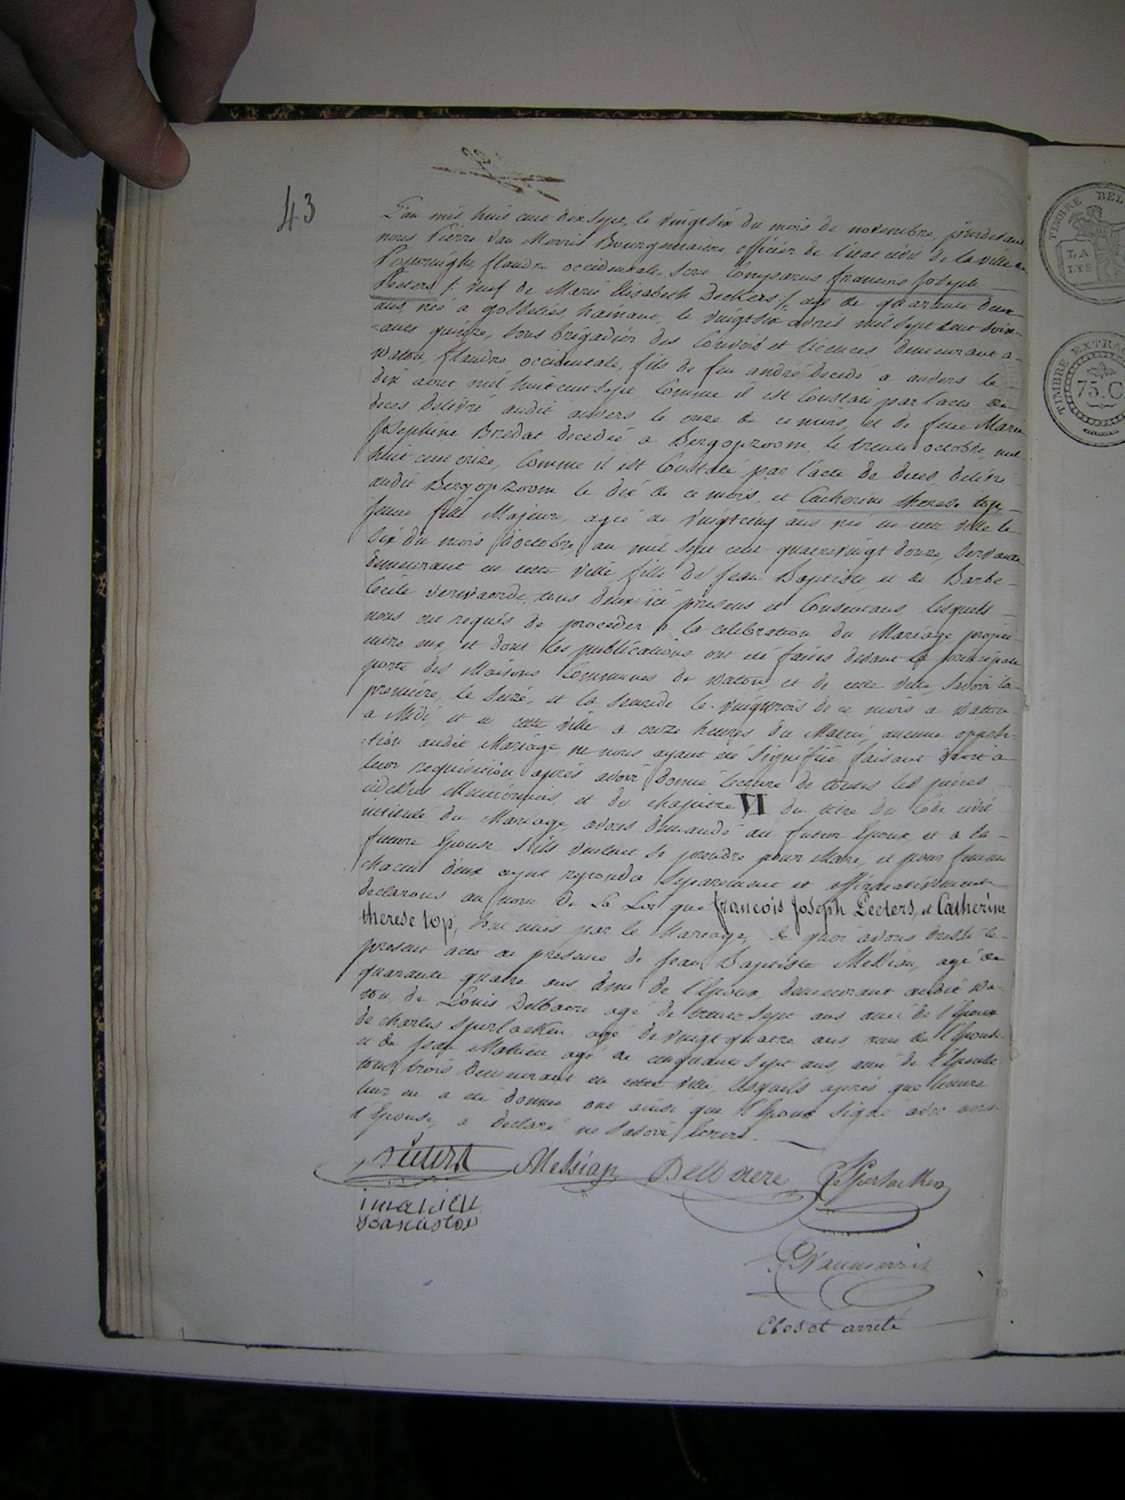 43
L'an mil huit cent dix sept, le vingt six du mois de novembre, pardevant
nous Pierre Van Merris Bourguemaitre officier de l'état civil de la ville de
Poperinghe, flandre occidentale, sont Comparus francois Joseph
Peeters /: veuf de Marie Elisabeth Deckers :/ agé de quarante deux
ans né a gosselies, hainaut, le vingt six avril mil sept cent soix-
-ante quinze, sous brigadier des Convois et licences demeurant a
watou flandre occidentale, fils de feu andré decedé a anvers le
dix aout mil huit cent sept Comme il est Constaté par l'acte de
deces delivré audit anvers le onze de ce mois, et de feue Marie
Josephine Bredat decedée a Bergopzoom, le trente octobre mil
huit cent onze, Comme il est Constaté par l'acte de deces delivré
audit Bergopzoom le dix de ce mois, et Catherine therese top
jeune fille Majeure, agée de vingt cinq ans née en cette ville le
six du mois d'octobre an mil sept cent quatre vingt douze, servante
demeurant en cette ville, fille de Jean Baptiste et de Barbe
Cecile tous deux ici presens et Consentans lesquels
nous ont requis de proceder a la celebration du Mariage projeté
entre eux et dont les publications ont été faites devant la principale
porte des Maisons Communes de watou, et de cette ville, savoir la
premiere, le seize, et la seconde le vingt trois de ce mois a watou
a Midi, et en cette ville a onze heures du Matin, aucune opposi-
-tion audit Mariage ne nous ayant été signifiée faisant droit a
leur requisition, après avoir donné lecture de toutes les pieces
cidessus Mentionnés, et du chapitre VI du titre du Code civil
intitulé du Mariage, avons demandé au futur Epoux et a la
future Epouse s'ils veulent se prendre pour Mari, et pour femme
chacun d'eux ayant repondu separement et affirmativement
declarons au nom de La Loi que francois Joseph Peeters, et Catherine
therese top, sont unis par le Mariage, de quoi avons dressé le
present acte en presence de Jean Baptiste Messian, agé de
quarante quatre ans ami de l'Epoux demeurant audit wa-
tou, de Louis Delbaere agé de trente sept ans ami de l'Epoux
de charles Sperlaeken agé de vingt quatre ans ami de l'Epouse
et de Jean Mahieu agé de cinquante sept ans, ami de l'Epouse
tous trois demeurant en cette ville lesquels après que lecture
leur en a été donnée ont ainsi que l'Epoux signé avec nous
l'Epouse, a declaré ne savoir Ecrire.
Peeters Messian Delbaere
j mahieu
P Vanmerris
Clos et arreté
TIMBRE BEL
LA
LYS
TIMBRE EXTRA
75.C